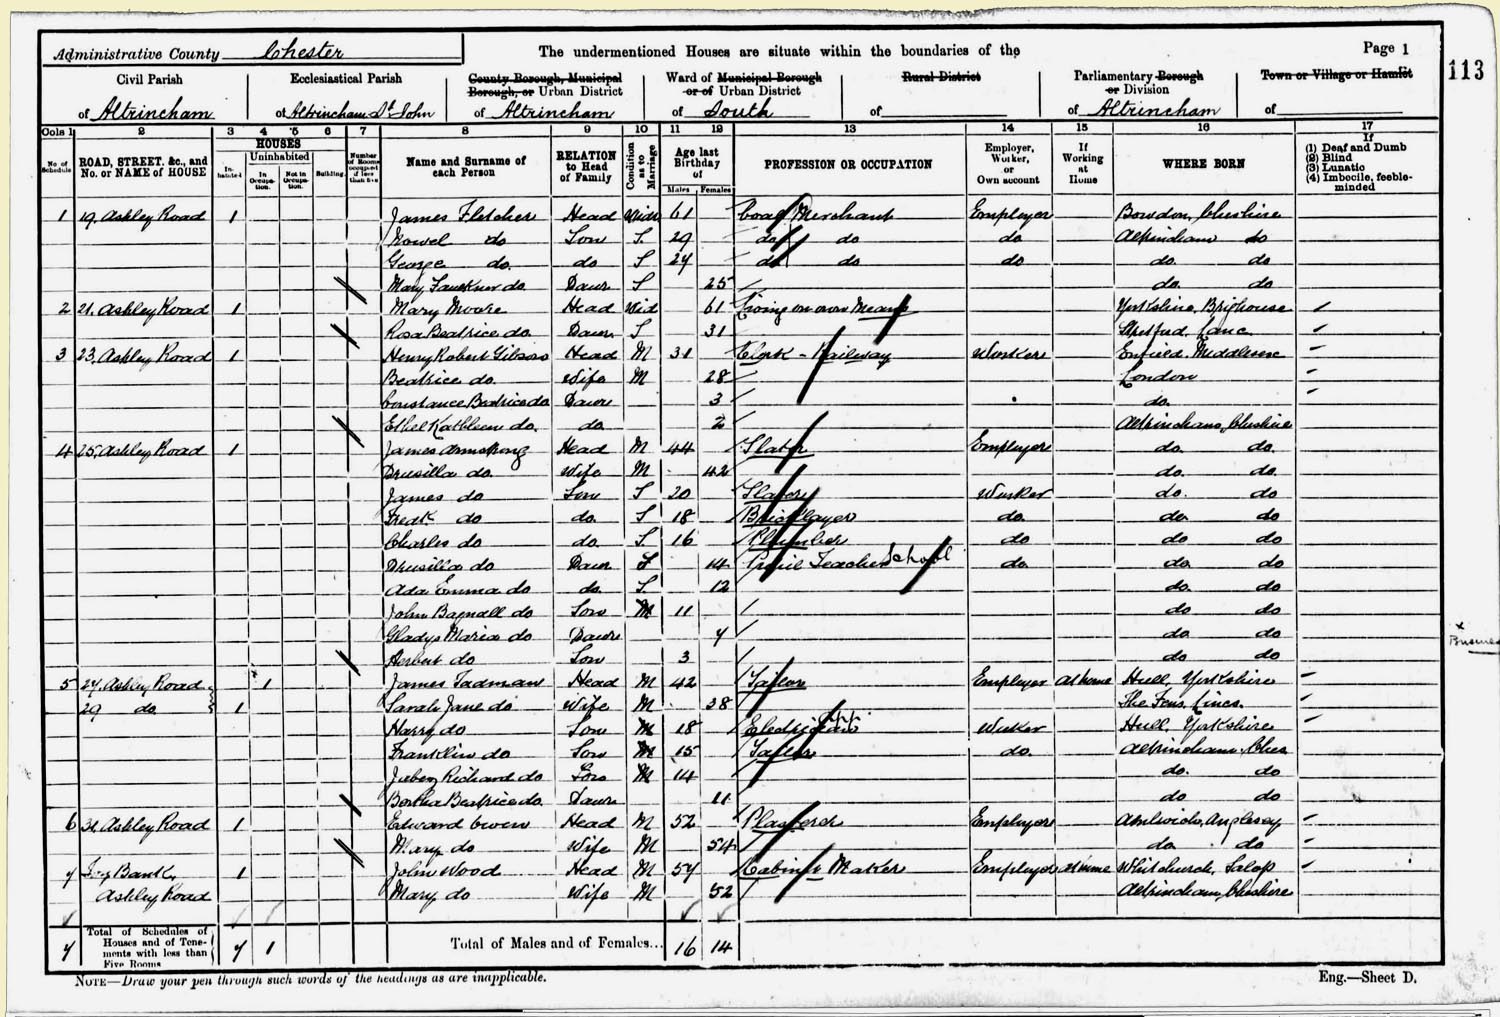 Administrative County Chester
The undermentioned Houses are situate within the boundaries of the
Page 1
113
Civil Parish
of Altrincham
Ecclesiastical Parish
of Altrincham St John
County Borough, Municipal Borough, or Urban District
of Altrincham
Ward of Municipal Borough or of Urban District
of South
Rural District
of
Parliamentary Borough or Division
of Altrincham
Town or Village or Hamlet
of
Cols 1 2 3 4 5 6 7 8 9 10 11 12 13 14 15 16 17
No of Schedule
ROAD, STREET, &c., and No. or NAME of HOUSE
HOUSES
Inhabited
Uninhabited
In Occupation.
Not in Occupation.
Building.
Number of Rooms occupied if less than five
Name and Surname of each Person
RELATION to Head of Family
Condition as to Marriage
Age last Birthday of
Males Females
PROFESSION OR OCCUPATION
Employer, Worker, or Own account
If Working at Home
WHERE BORN
If
(1) Deaf and Dumb
(2) Blind
(3) Lunatic
(4) Imbecile, feeble-minded
1 19, Ashley Road 1 James Fletcher Head Widr 61 Coal Merchant Employer Bowdon, Cheshire
do Son S. 29 do do do Altrincham do
George do. do S 24 do do do do. do
Mary Faulkner do Daur S 25 do. do
2 21. Ashley Road 1 Mary Moore Head Wid 61 Living on own Means Yorkshire, Brighouse
Rosa Beatrice do. Daur S 31 Stretford, Lanc
3 23, Ashley Road 1 Henry Robert Gibson Head M 31 Clerk - Railway Worker Enfield, Middlesex
Beatrice do. Wife M 28 London
Constance Beatrice do Daur 3 do.
Ethel Kathleen do. do. 2 Altrincham, Cheshire
4 25, Ashley Road 1 James Armstrong Head M 44 Slater Employer do do.
Drusilla do. Wife M 42 do. do
James do Son S 20 Slater Worker do. do
Fredk do do. S 18 Bricklayer do. do do
Charles do do. S. 16 Plumber do do do
Drusilla do Daur S 14 Pupil Teacher School do. do do
Ada Emma do do. S. 12 do. do
John Bagnall do Son M 11 do do
Gladys Maria do Daur 7 do do
Herbert do Son 3 do do
5 27, Ashley Road 1 James Tadman Head M 42 Tailor Employer At home Hull, Yorkshire
29 do. 1 Sarah Jane do Wife M 38 The Fens, Lincs.
Harry do Son M 18 Electrician App. Worker Hull, Yorkshire
Franklin do Son M 15 Tailor do. Altrincham, Ches
Jabez Richard do Son M 14 do. do
Bertha Beatrice do. Daur 11 do do
6 31, Ashley Road 1 Edward Owen Head M 52 Plasterer Employer Amlwich, Anglesey
Mary do Wife M 54 do. do
7 Ivy Bank, 1 John Wood Head M 57 Cabinet Maker Employer At home Whitchurch, Salop
Ashley Road Mary do Wife M 52 Altrincham, Cheshire
7 Total of Schedules of Houses and of Tenements with less than Five Rooms 7 1 Total of Males and of Females... 16 14
NOTE—Draw your pen through such words of the headings as are inapplicable.
Eng.—Sheet D.